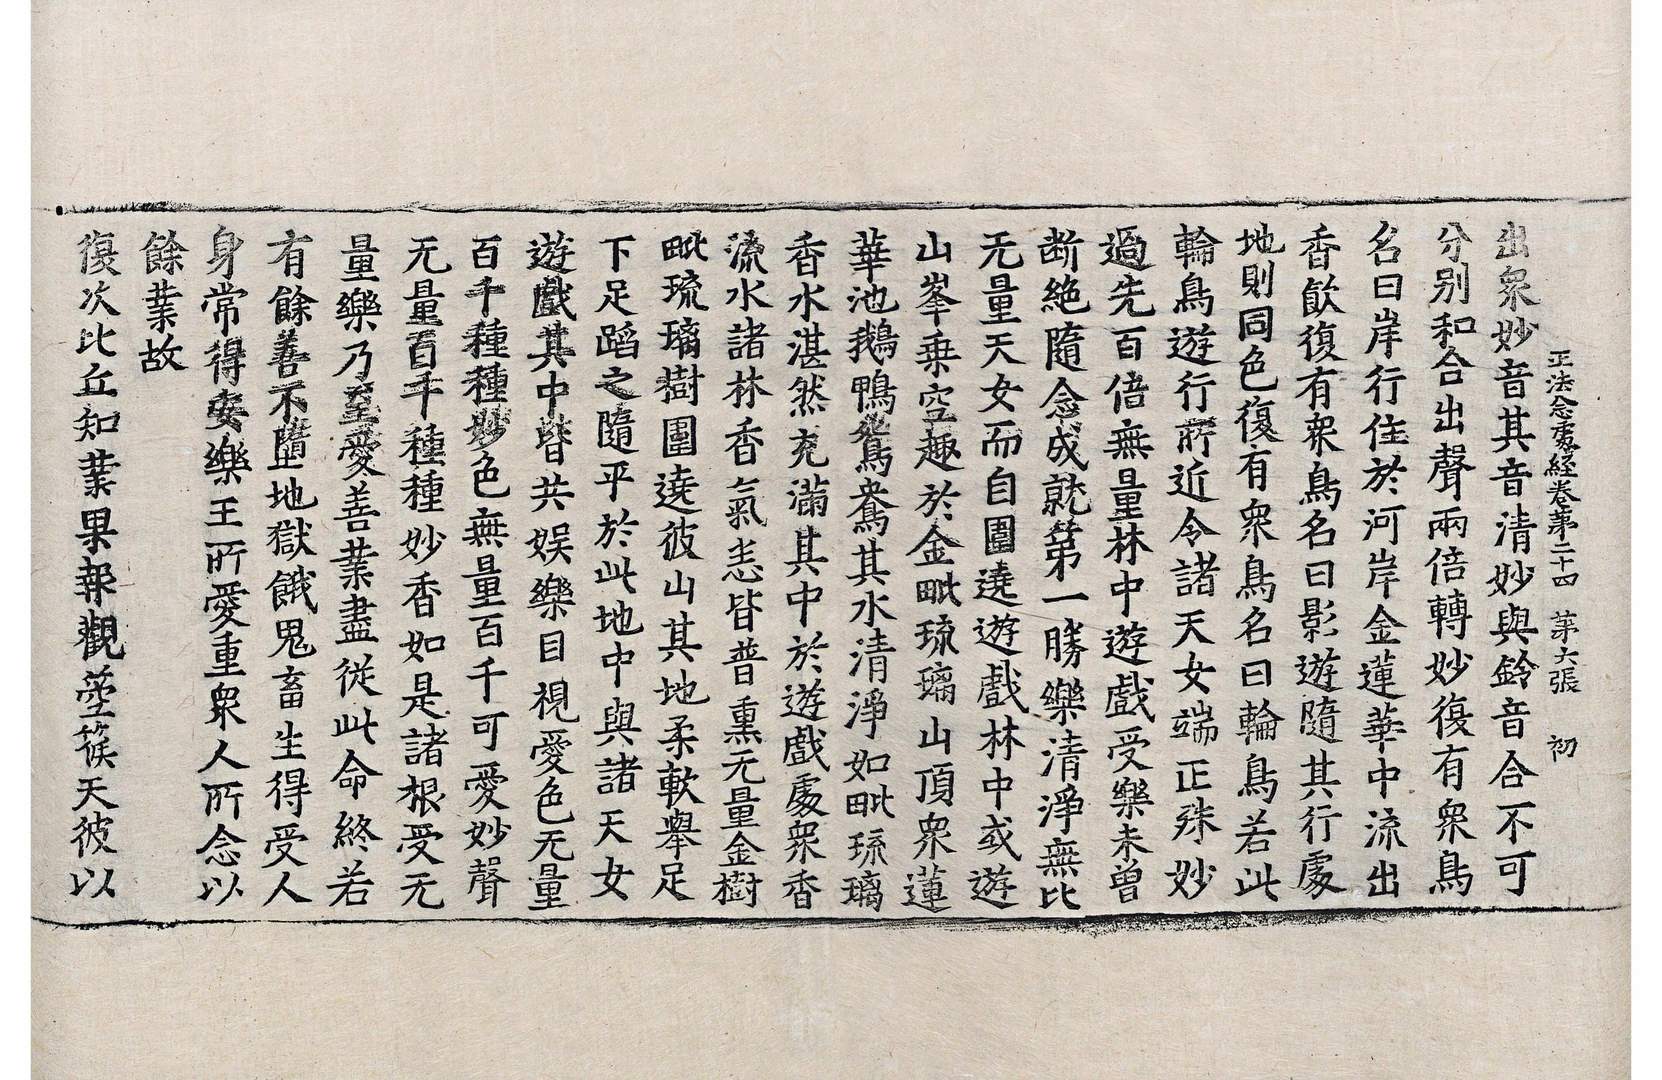 正法念處經卷第二十四 第六張 初
出衆妙音其音清妙與鈴音合不可
分别和合出聲兩倍轉妙復有衆鳥
名曰岸行住於河岸金蓮華中流出
香飮復有衆鳥名曰影遊隨其行處
地則同色復有衆鳥名曰輪鳥若此
輪鳥遊行所近令諸天女端正殊妙
過先百倍無量林中遊戲受樂未曾
断絶隨念成就第一勝樂清淨無比
无量天女而自圍遶遊戲林中或遊
山峯乗空趣於金毗琉璃山頂衆蓮
華池鵝鴨鴛鴦其水清淨如毗琉璃
香水湛然充滿其中於遊戲處衆香
流水諸林香氣悉皆普熏无量金樹
毗琉璃樹圍遶彼山其地柔軟舉足
下足蹈之隨平於此地中與諸天女
遊戲其中皆共娱樂目視愛色无量
百千種種妙色無量百千可愛妙聲
无量百千種種妙香如是諸根受无
量樂乃至愛善業盡從此命終若
有餘善不墮地獄餓鬼畜生得受人
身常得安樂王所愛重衆人所念以
餘業故
復次比丘知業果報觀箜篌天彼以